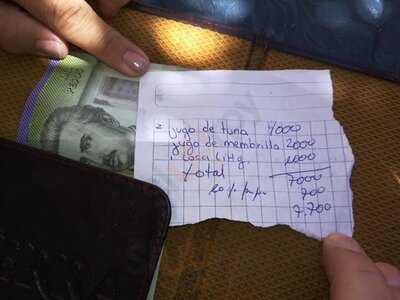 2 jugo de tuna 4000
jugo de membrillo 2000
1 coca Litg. 1000
total 7000
700
7.700